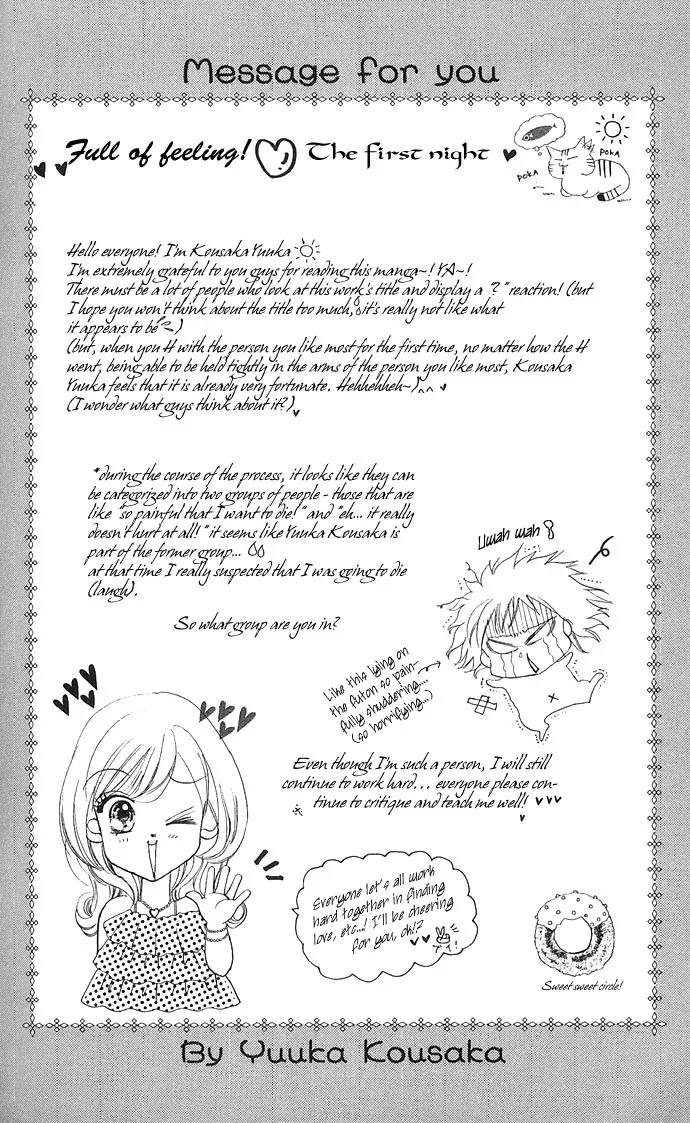 Message for you
Full of feeling! The first night
POKA
POKA
Hello everyone! I'm Kousaka Yuuka
I'm extremely grateful to you guys for reading this manga~! YA~!
There must be a lot of people who look at this work's title and display a "?" reaction! (but
I hope you won't think about the title too much, it's really not like what
it appears to be")
(but, when you H with the person you like most for the first time, no matter how the H
went, being able to be held tightly in the arms of the person you like most, Kousaka
Yuuka feels that it is already very fortunate. Hehhehheh~)^^
(I wonder what guys think about it?)
*during the course of the process, it looks like they can
be categorized into two groups of people - those that are
like "so painful that I want to die!" and "eh... it really
doesn't hurt at all!" it seems like Yuuka Kousaka is
part of the former group...
at that time I really suspected that I was going to die
(laugh).
So what group are you in?
Uwah wah
Like this lying on
the futon so pain-
fully shuddering...
(so horrifying...)
Even though I'm such a person, I will still
continue to work hard... everyone please con-
tinue to critique and teach me well!
Everyone let's all work
hard together in finding
love, etc...! I'll be cheering
for you, oh!?
Sweet sweet circle!
By Yuuka Kousaka